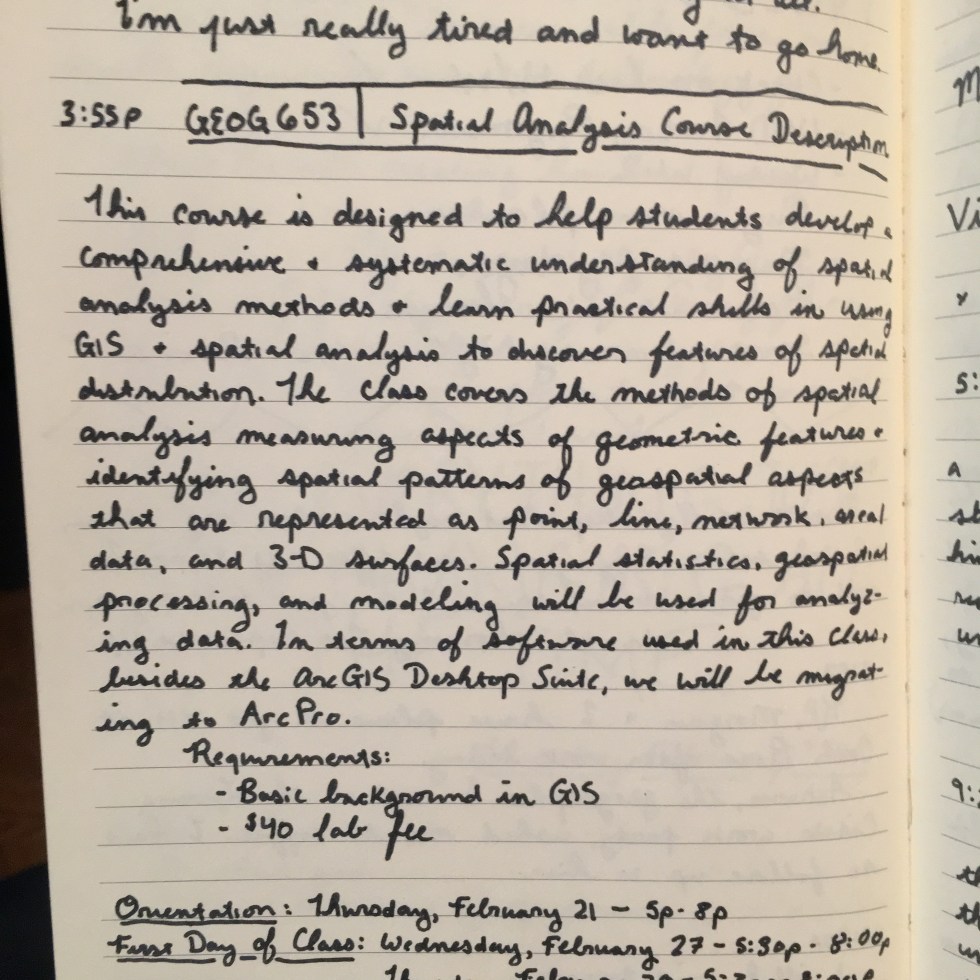 I'm just really tired and want to go home.
3:55p GEOG 653 | Spatial Analysis Course Description
This course is designed to help students develop a
comprehensive + systematic understanding of spatial
analysis methods + learn practical skills in using
GIS + spatial analysis to discover features of spatial
distribution. The class covers the methods of spatial
analysis measuring aspects of geometric features +
identifying spatial patterns of geospatial aspects
that are represented as point, line, network, areal
data, and 3-D surfaces. Spatial statistics, geospatial
processing, and modeling will be used for analyz-
ing data. In terms of software used in this class,
besides the ArcGIS Desktop Suite, we will be migrat-
ing to ArcPro.
Requirements:
- Basic background in GIS
- $40 lab fee
Orientation: Thursday, February 21 - 5p-8p
First Day of Class: Wednesday, February 27 - 5:30p - 8:00p
Vi
5:
a
9: